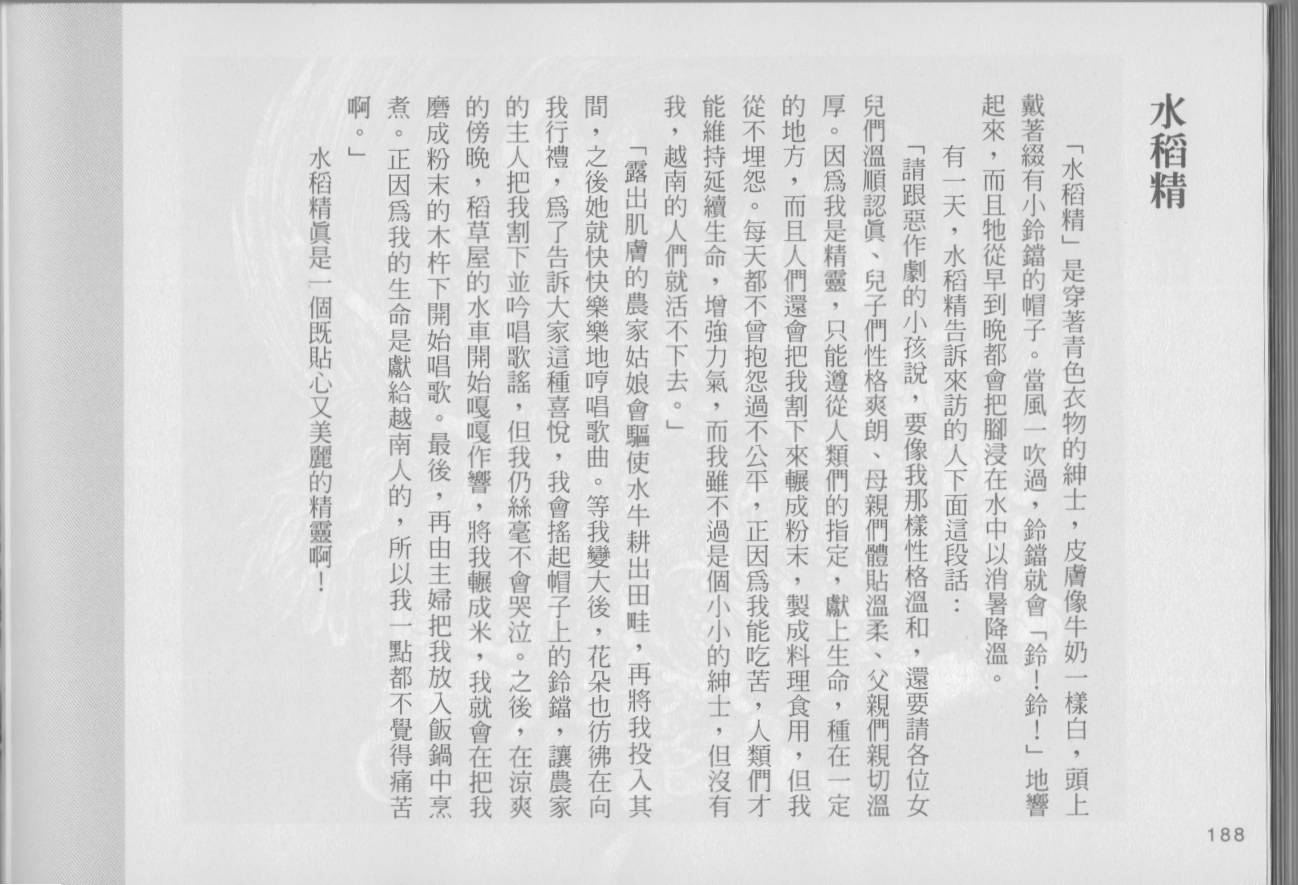 水稻精
「水稻精」是穿著青色衣物的紳士，皮膚像牛奶一樣白，頭上
戴著綴有小鈴鐺的帽子。當風一吹過，鈴鐺就會「鈴！鈴！」地響
起來，而且牠從早到晚都會把腳浸在水中以消暑降溫。
有一天，水稻精告訴來訪的人下面這段話：
「請跟惡作劇的小孩說，要像我那樣性格溫和，還要請各位女
兒們溫順認眞、兒子們性格爽朗、母親們體貼溫柔、父親們親切溫
厚。因爲我是精靈，只能遵從人類們的指定，獻上生命，種在一定
的地方，而且人們還會把我割下來輾成粉末，製成料理食用，但我
從不埋怨。每天都不曾抱怨過不公平，正因爲我能吃苦，人類們才
能維持延續生命，增強力氣，而我雖不過是個小小的紳士，但沒有
我，越南的人們就活不下去。」
「露出肌膚的農家姑娘會驅使水牛耕出田畦，再將我投入其
間，之後她就快快樂樂地哼唱歌曲。等我變大後，花朵也彷彿在向
我行禮，爲了告訴大家這種喜悅，我會搖起帽子上的鈴鐺，讓農家
的主人把我割下並吟唱歌謠，但我仍絲毫不會哭泣。之後，在涼爽
的傍晚，稻草屋的水車開始嘎嘎作響，將我輾成米，我就會在把我
磨成粉末的木杵下開始唱歌。最後，再由主婦把我放入飯鍋中烹
煮。正因爲我的生命是獻給越南人的，所以我一點都不覺得痛苦
啊。」
水稻精眞是一個既貼心又美麗的精靈啊！
188